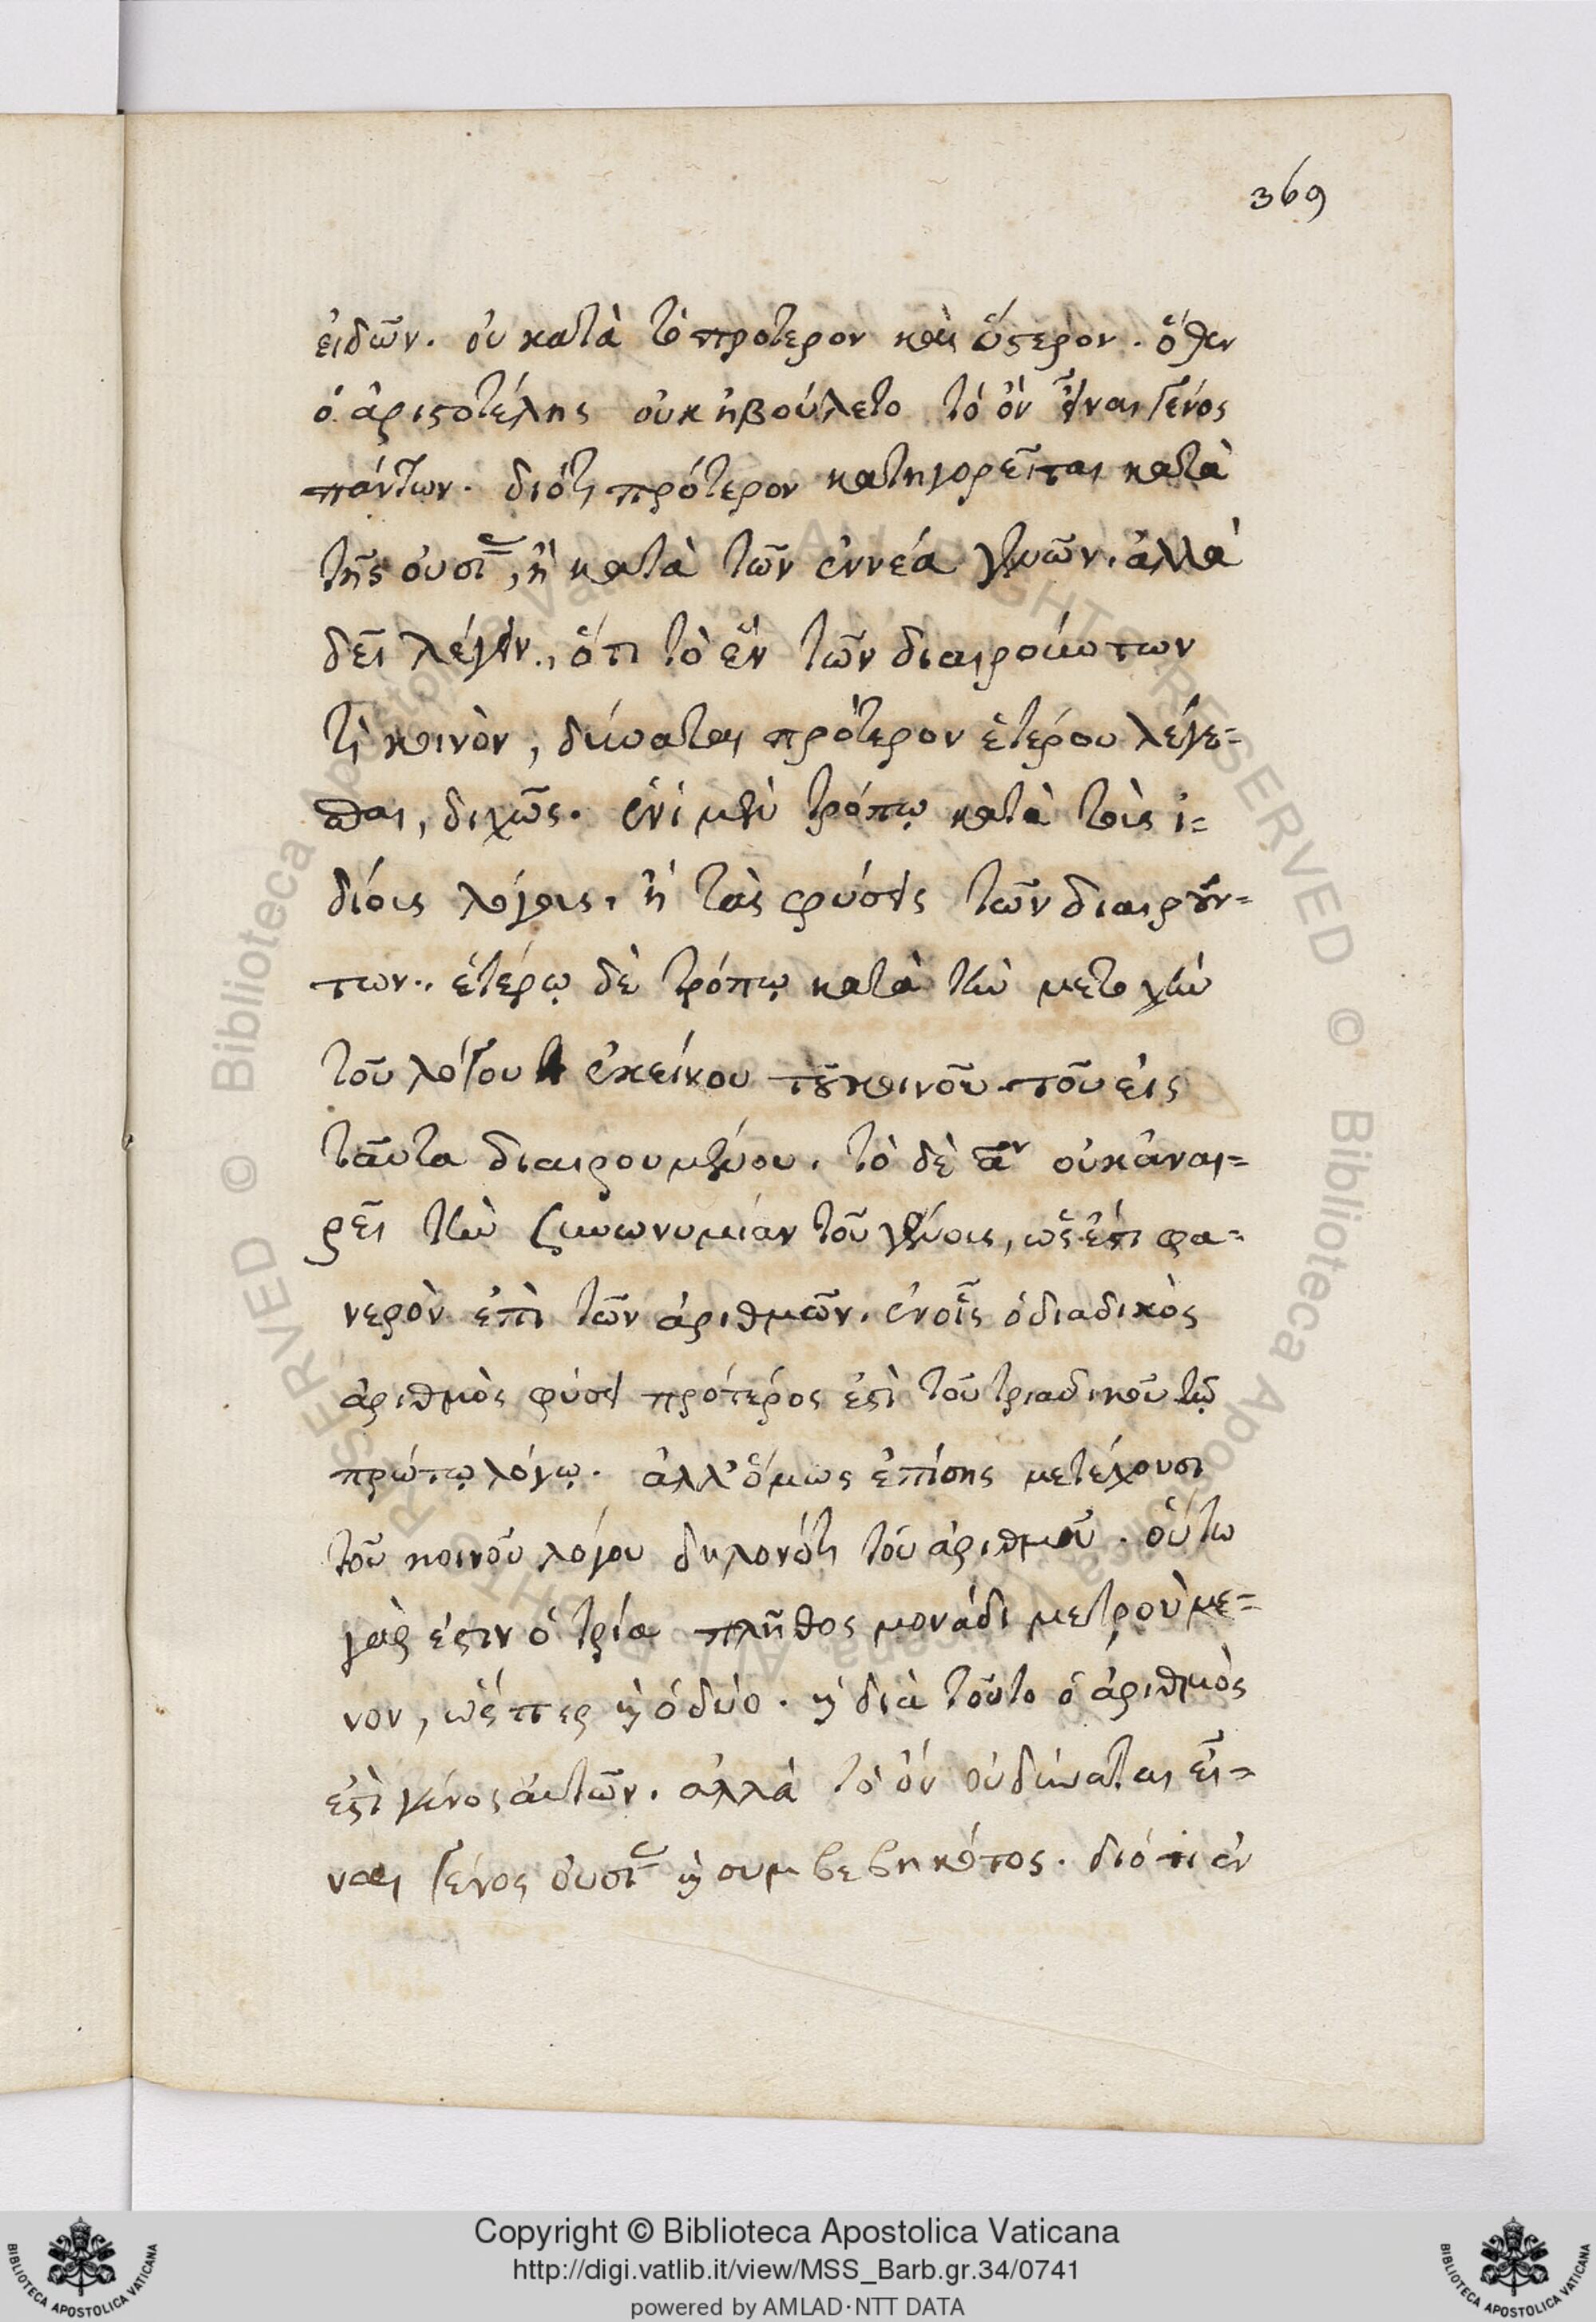 369
εἰδῶν. οὐ κατὰ τὸ πρότερον καὶ ὕστερον. ὅθεν
ὁ ἀριστοτέλης οὐκ ἠβούλετο τὸ ὂν εἶναι γένος
πάντων. διότι πρότερον κατηγορεῖται κατὰ
τῆς οὐσί, ἢ κατὰ τῶν ἐννέα γενῶν. ἀλλὰ
δεῖ λέγειν, ὅτι τὸ ἓν τῶν διαιρούντων
τὶ κοινὸν, δύναται πρότερον ἑτέρου λέγε=
σθαι, διχῶς. ἑνὶ μὲν τρόπῳ κατὰ τοὺς ἰ=
δίους λόγους, ἢ τὰς φύσεις τῶν διαιρούν=
των. ἑτέρῳ δὲ τρόπῳ κατὰ τὴν μετοχὴν
τοῦ λόγου ἐκείνου τοῦ κοινοῦ τοῦ εἰς
ταῦτα διαιρουμένου. τὸ δὲ αον οὐκ ἀναι=
ρεῖ τὴν συνωνυμίαν τοῦ γένους, ὥς ἐστι φα=
νερὸν ἐπὶ τῶν ἀριθμῶν. ἐν οἷς ὁ διαδικὸς
ἀριθμὸς φύσει πρότερός ἐστι τοῦ τριαδικοῦ τῷ
πρώτῳ λόγῳ. ἀλλ' ὅμως ἐπίσης μετέχουσι
τοῦ κοινοῦ λόγου δηλονότι τοῦ ἀριθμοῦ. οὕτω
γάρ ἐστιν ὁ τρία πλῆθος μονάδι μετρούμε=
νον, ὥσπερ καὶ ὁ δύο. καὶ διὰ τοῦτο ὁ ἀριθμὸς
ἐστὶ γένος αὐτῶν. ἀλλὰ τὸ ὂν οὐ δύναται εἶ=
ναι γένος οὐσί καὶ συμβεβηκότος. διότι ἐν
Copyright © Biblioteca Apostolica Vaticana
http://digi.vatlib.it/view/MSS_Barb.gr.34/0741
powered by AMLAD·NTT DATA